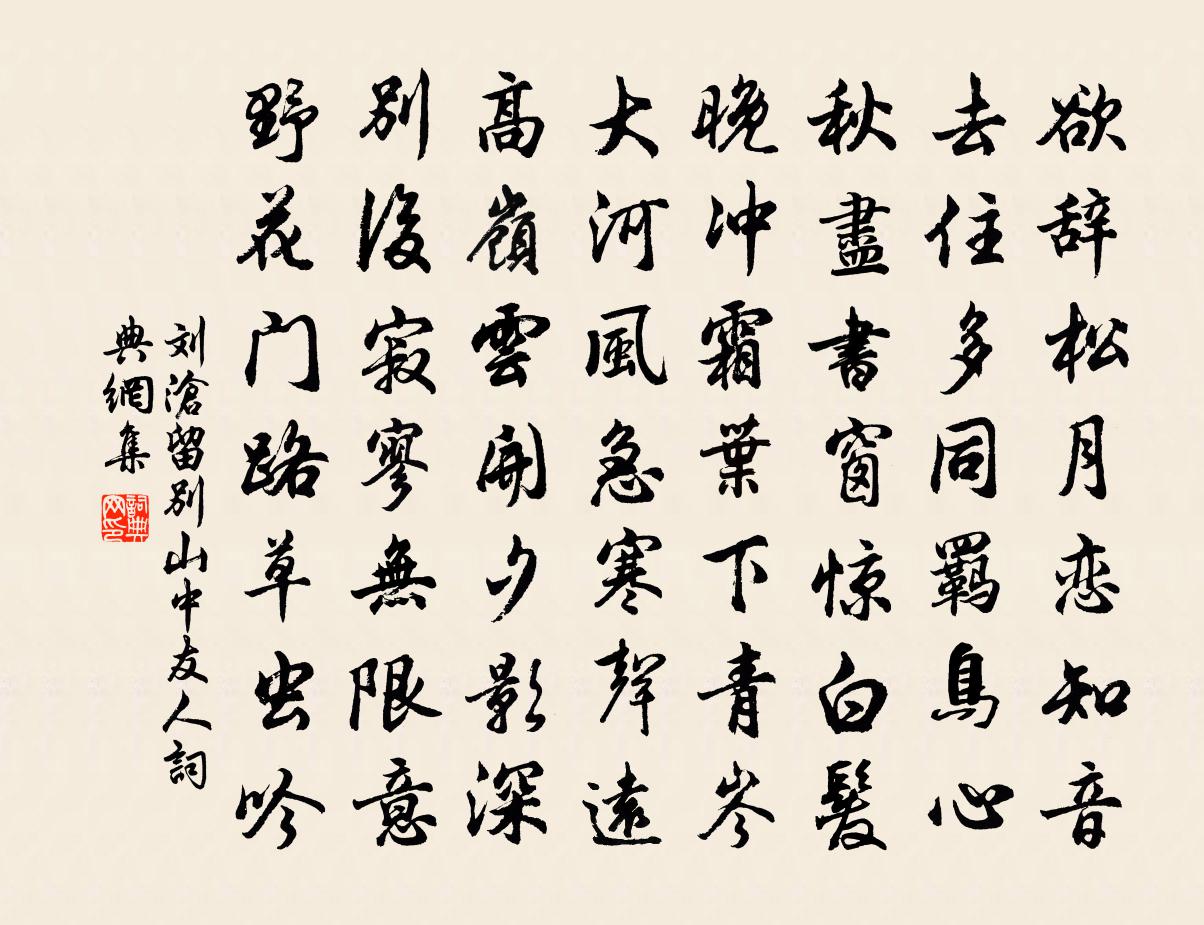 欲辞松月恋知音
去住多同羁鳥心
秋盡書窗惊白髮
晚冲霜葉下青岑
大河風急寒聲遠
高嶺雲開夕影深
别後寂寥無限意
野花门路草虫吟
刘滄留别山中友人詞
典網集
詞典网印